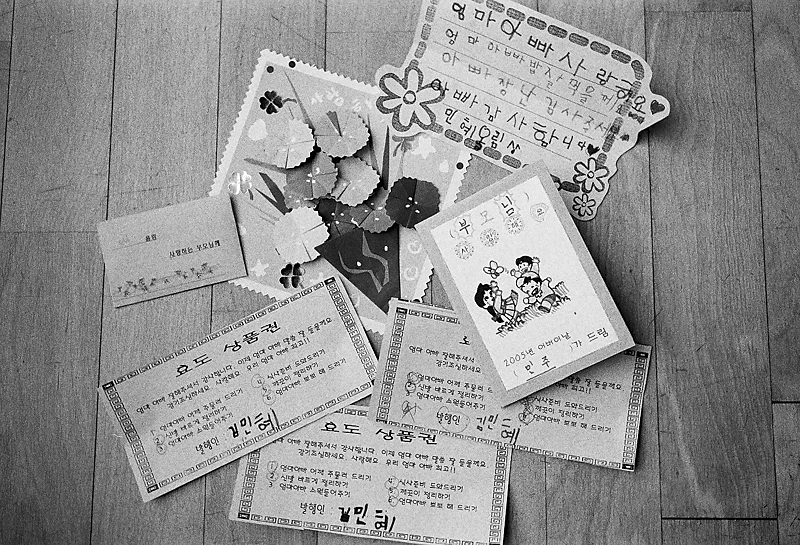 엄마아빠사랑해요
엄마아빠밥잘먹을께
아빠장난감사주셔
아빠감사합니다
민혜올림
올림
사랑하는 부모님께
부모님
사랑해요
2005년 어버이날
민주가 드림
효도 상품권
엄마 아빠 잘해주셔서 감사합니다 이제 엄마 아빠 말씀 잘 들을께요
감기조심하세요 사랑해요 우리 엄마 아빠 최고!!
① 엄마아빠 어깨 주물러 드리기
② 신발 바르게 정리하기
③ 엄마아빠 소원들어주기
④ 식사준비 도와드리기
⑤ 책꽂이 정리하기
⑥ 엄마아빠 뽀뽀 해 드리기
발행인 김민혜
효도 상품권
엄마 아빠 잘해주셔서 감사합니다 이제 엄마 아빠 말씀 잘 들을께요
감기조심하세요 사랑해요 우리 엄마 아빠 최고!!
① 엄마아빠 어깨 주물러 드리기
② 신발 바르게 정리하기
③ 엄마아빠 소원들어주기
④ 식사준비 도와드리기
⑤ 책꽂이 정리하기
⑥ 엄마아빠 뽀뽀 해 드리기
발행인 김민혜
엄마 아빠 잘해주셔서
감기조심하세요
잘 들을께요
① 엄마아빠 어깨 주물러
② 신발 바르게 정리하기
③ 엄마아빠 소원들어주기
도와드리기
책꽂이 정리하기
엄마아빠 뽀뽀 해 드리기
발행인 김민혜